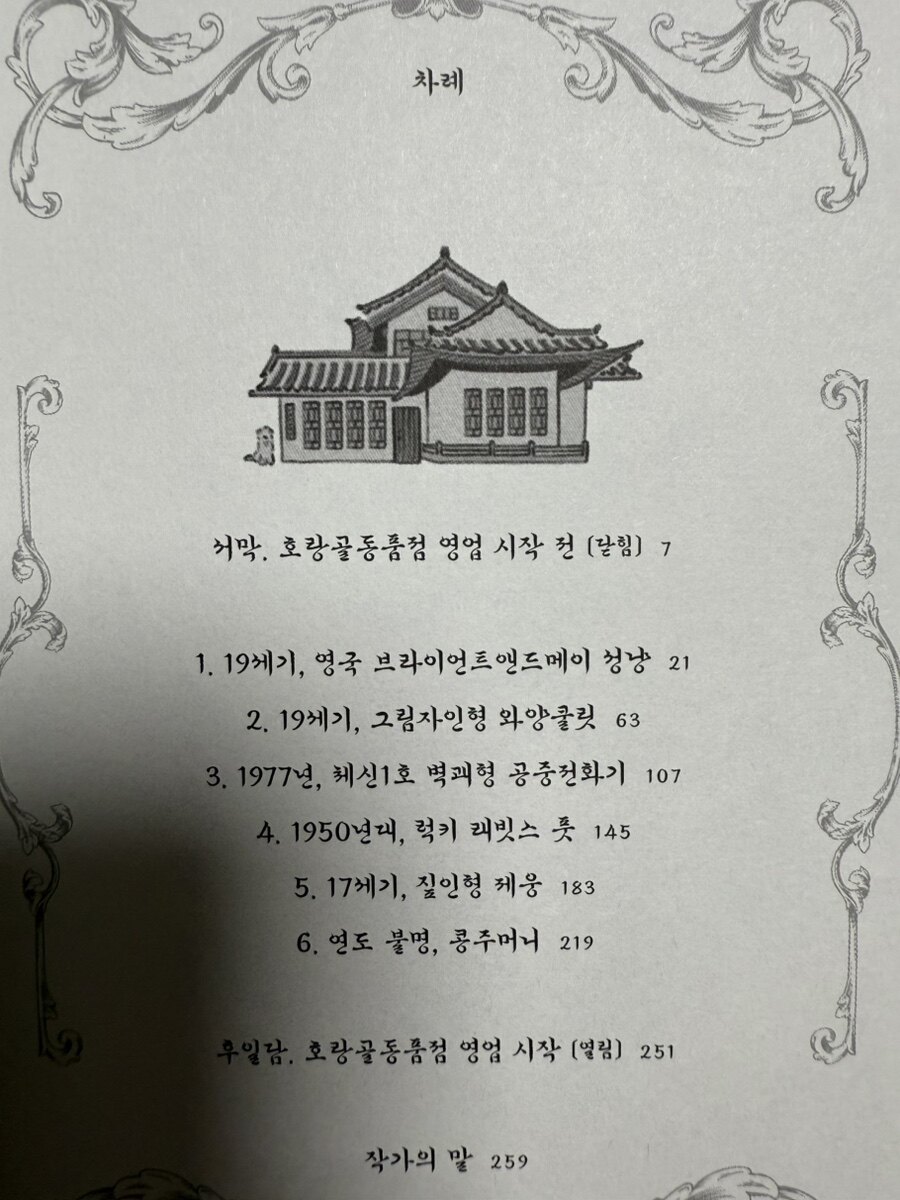 차례
서막. 호랑골동품점 영업 시작 전 (닫힘) 7
1. 19세기, 영국 브라이언트앤드메이 성냥 21
2. 19세기, 그림자인형 와양쿨릿 63
3. 1977년, 체신1호 벽괘형 공중전화기 107
4. 1950년대, 럭키 래빗스 풋 145
5. 17세기, 짚인형 제웅 183
6. 연도 불명, 콩주머니 219
후일담. 호랑골동품점 영업 시작 (열림) 251
작가의 말 259